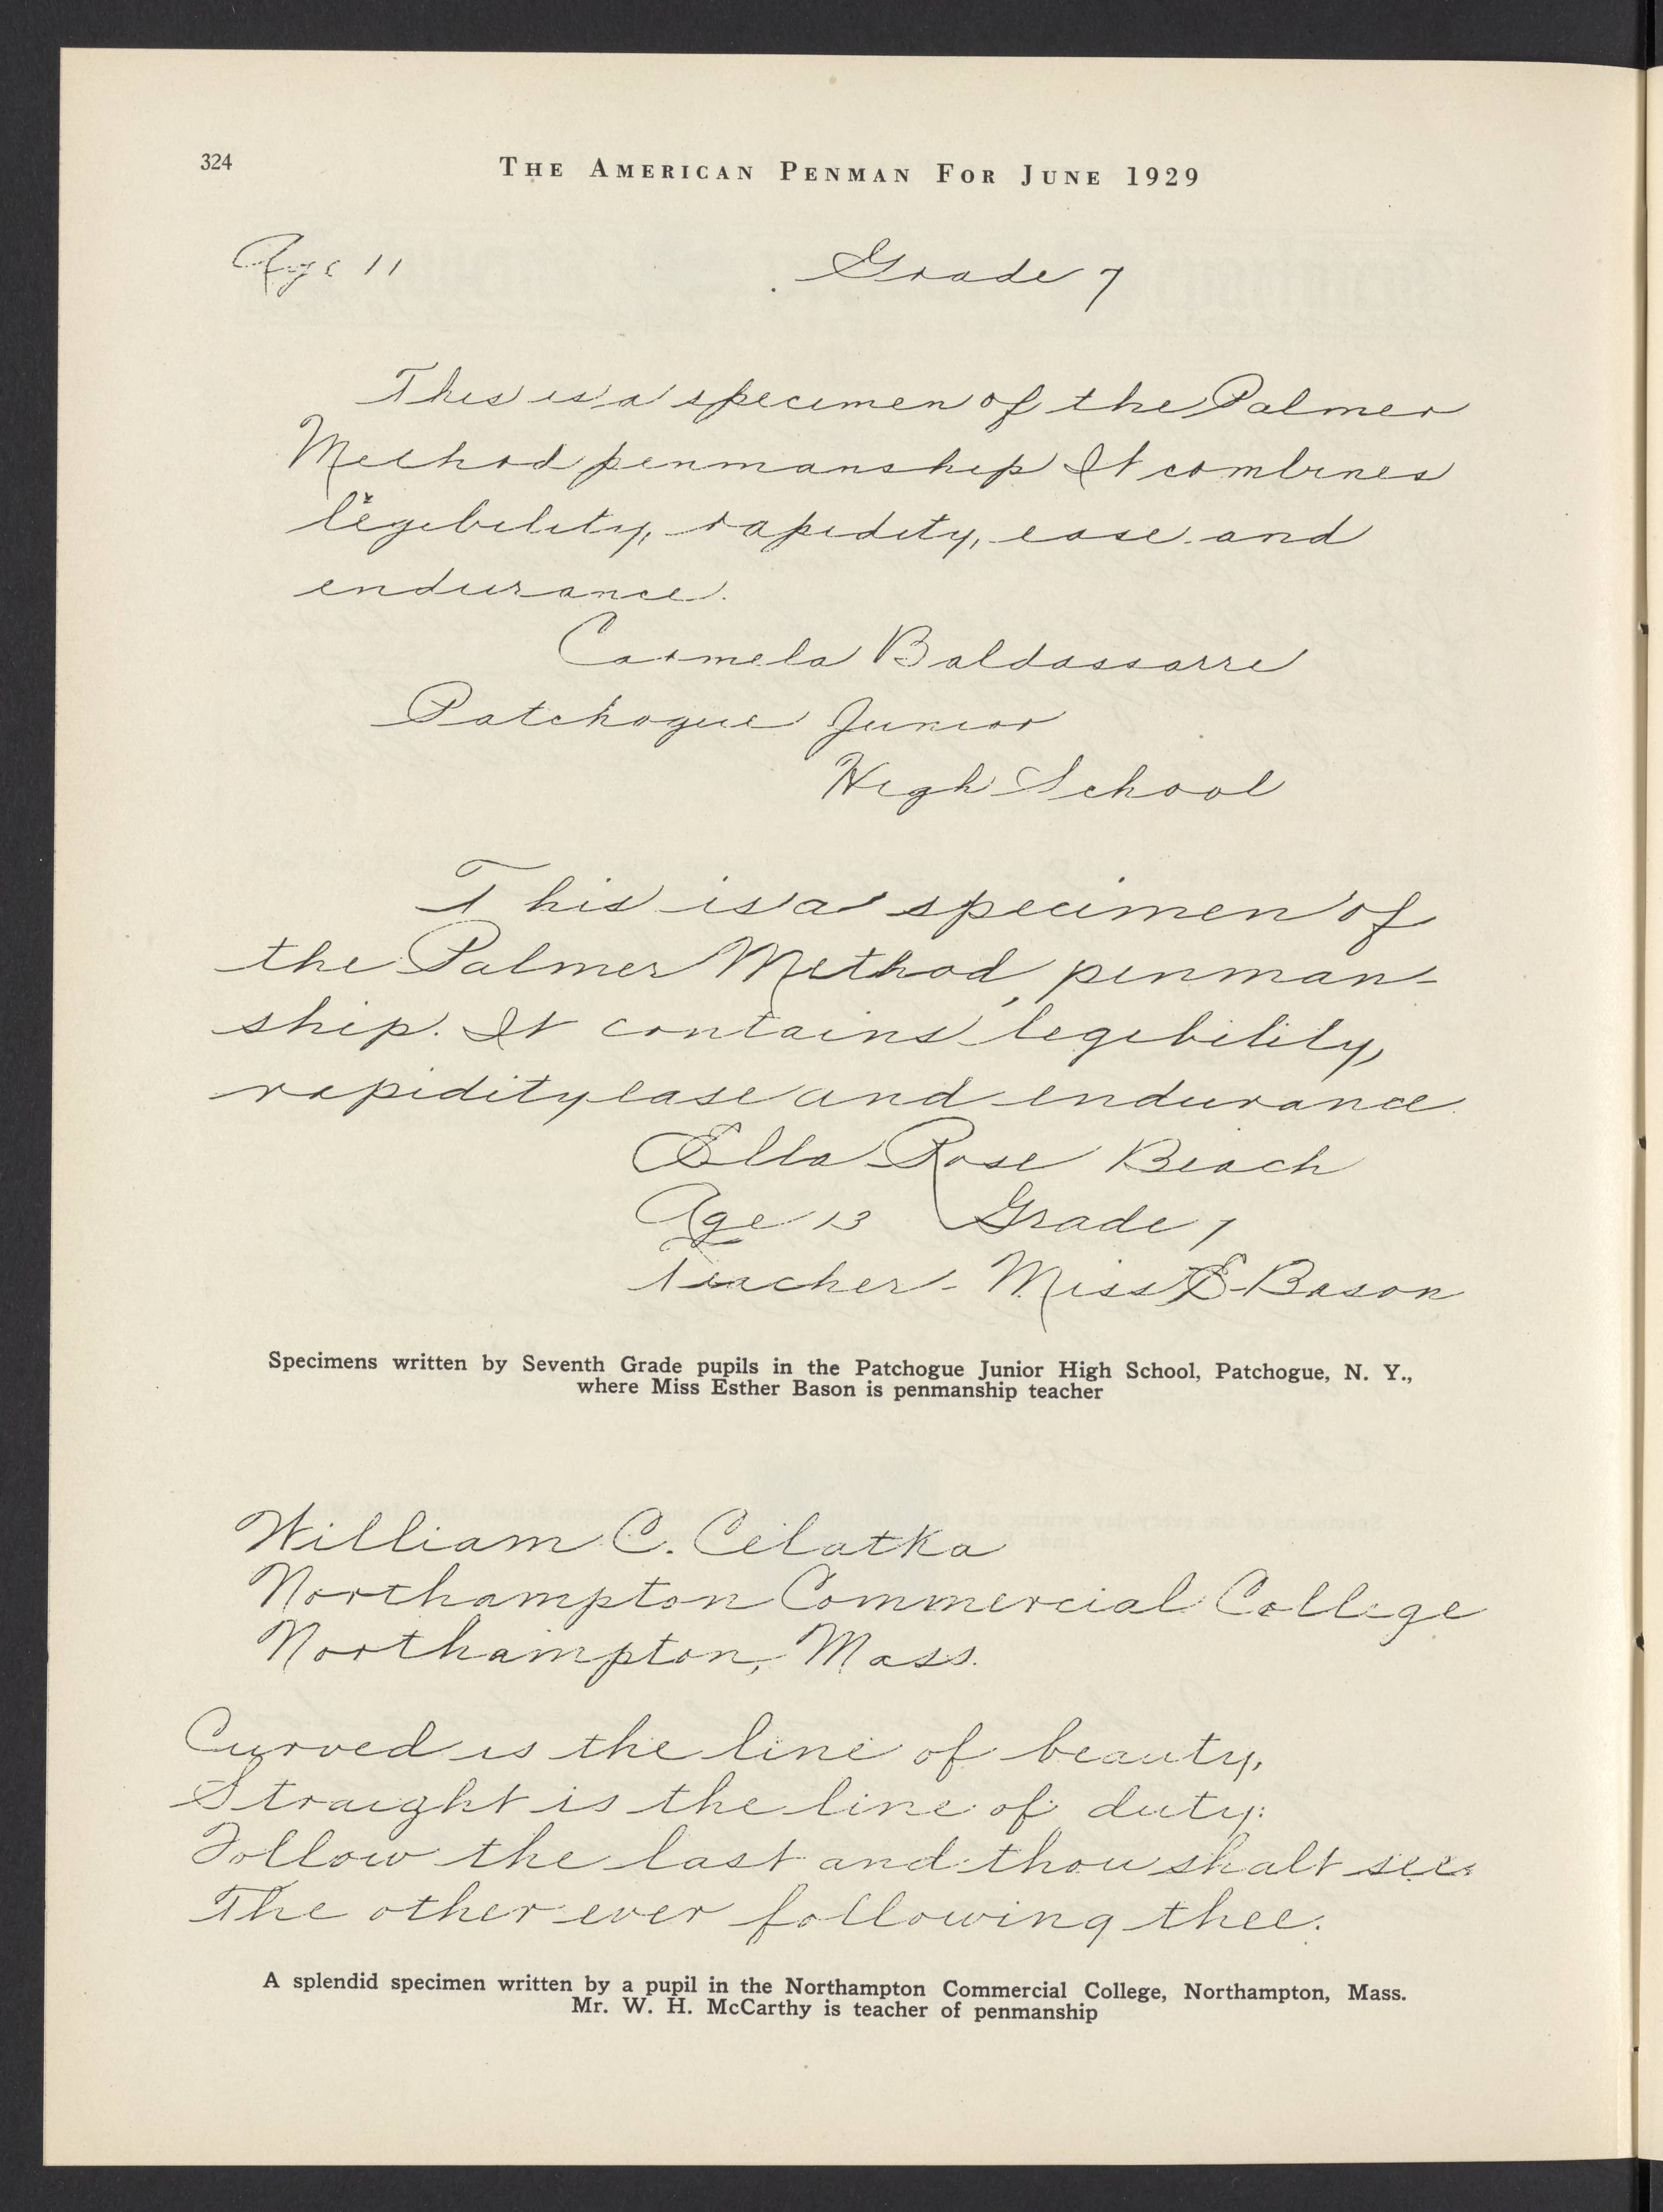 324
THE AMERICAN PENMAN FOR JUNE 1929
Age 11 Grade 7
This is a specimen of the Palmer
Method penmanship It combines
legibility, rapidity, ease and
endurance.
Carmela Baldassarre
Patchogue Junior
High School
This is a specimen of
the Palmer Method penman-
ship. It contains legibility,
rapidity ease and endurance.
Ella Rose Beach
Age 13 Grade 7
Teacher - Miss E Bason
Specimens written by Seventh Grade pupils in the Patchogue Junior High School, Patchogue, N. Y.,
where Miss Esther Bason is penmanship teacher
William C. Cilatka
Northampton Commercial College
Northampton, Mass.
Curved is the line of beauty,
Straight is the line of duty:
Follow the last and thou shalt see
The other ever following thee.
A splendid specimen written by a pupil in the Northampton Commercial College, Northampton, Mass.
Mr. W. H. McCarthy is teacher of penmanship